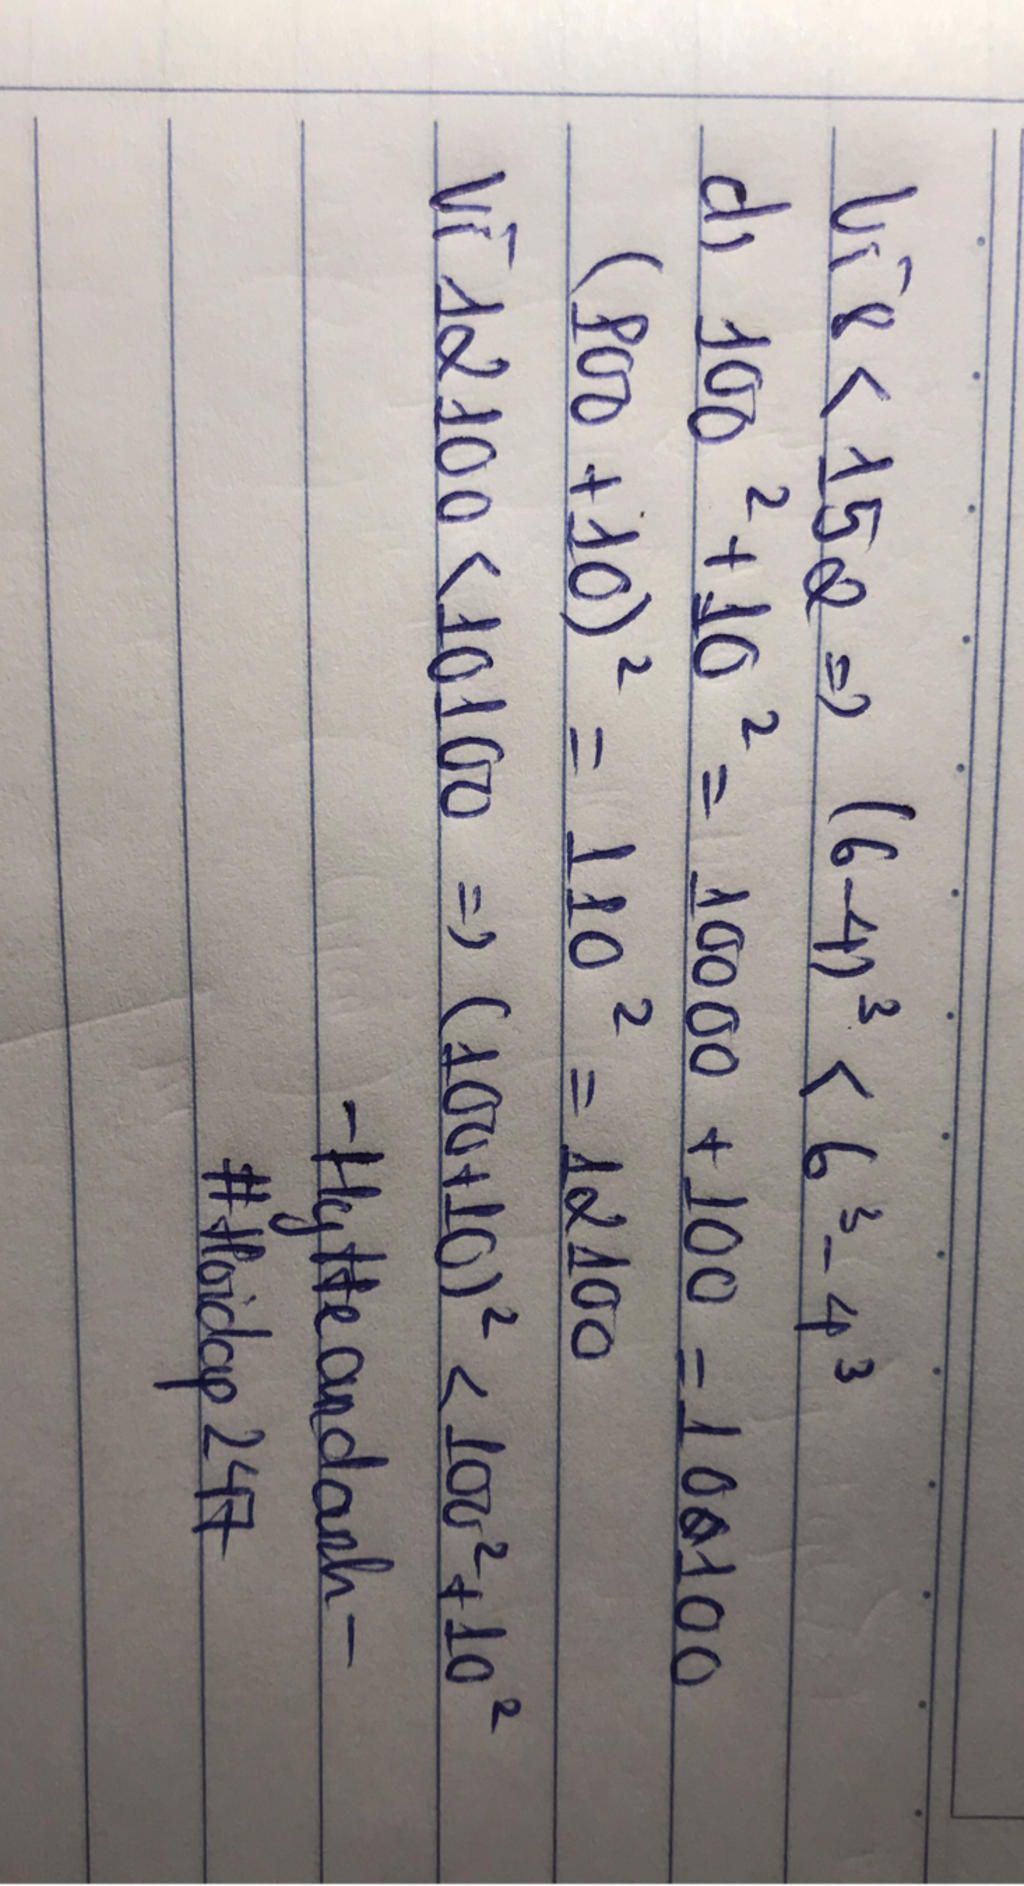 Vì 8 < 152 => (6-4)³ < 6³-4³
d, 100² + 10² = 10000 + 100 = 100100
(100 + 10)² = 110² = 12100
Vì 12100 < 10100 => (100+10)² < 100² + 10²
-HyHeandanh-
#Hoidap247